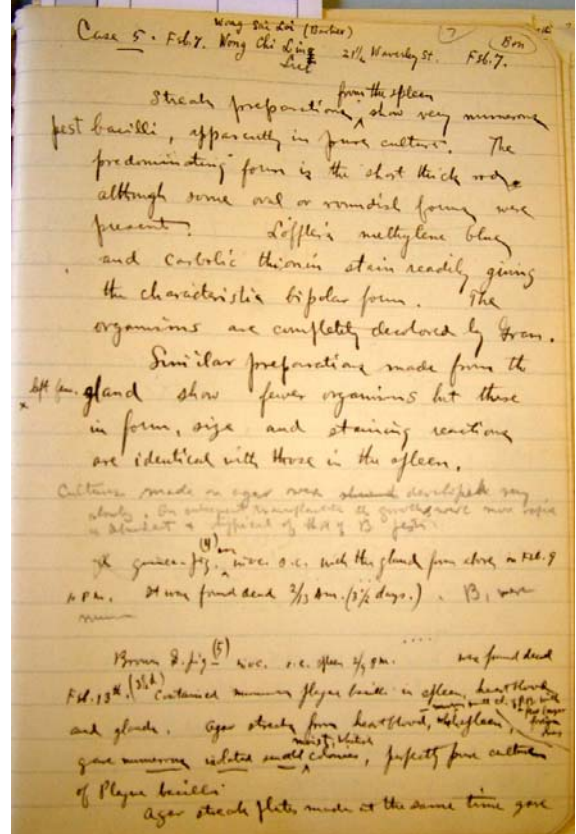 Wong Sai Loi (Barber)
Case 5. Feb. 7. Wong Chi Ling 21½ Waverley St. Feb. 7.
7
Bon
from the spleen
Streak preparations show very numerous
pest bacilli, apparently in pure culture. The
predominating form is the short thick rod,
although some oval or roundish forms were
present. Löffler's methylene blue
and carbolic thionin stain readily giving
the characteristic bipolar form. The
organisms are completely decolored by Gram.
Similar preparations made from the
left fem. gland show fewer organisms but these
in form, size and staining reactions
are identical with those in the spleen.
Cultures made on agar were developed very
slowly. On subsequent transplantation the growth were more rapid
is abundant & typical of that of B. pestis.
guinea-pig (4) was inoc. s.c. with the gland from above on Feb. 9
P.M. It was found dead 2/13 a.m. (3½ days.). B. were
Brown G. pig (5) inoc. s.c. spleen 2/9 p.m. was found dead
Feb. 13th. (3½ d.) Contained numerous plague bacilli in spleen, heart blood
and glands. Agar streaks from heart blood, spleen,
moist, whitish
gave numerous isolated small colonies, perfectly pure culture
of Plague bacilli
Agar streak plates made at the same time gave